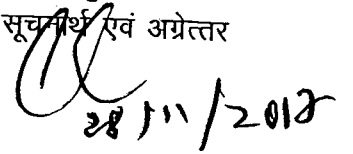 सूचनार्थ एवं अग्रेत्तर
28/11/2018